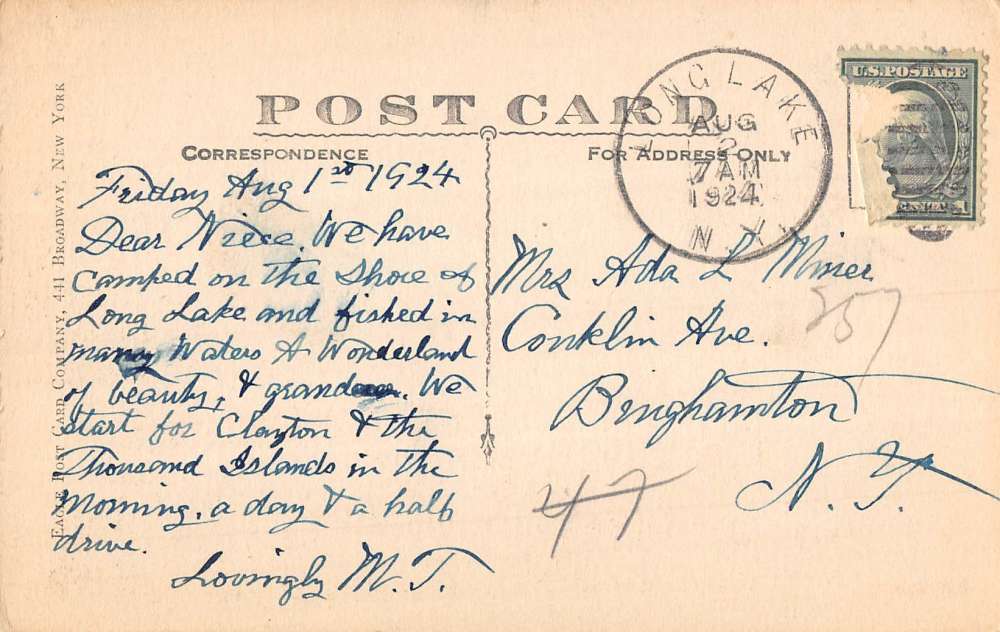 POST CARD
CORRESPONDENCE
FOR ADDRESS ONLY
EAGLE POST CARD COMPANY, 441 BROADWAY, NEW YORK
LONG LAKE
AUG
2
7 AM
1924
N.Y.
U.S. POSTAGE
Friday Aug 1st 1924
Dear Niece. We have
camped on the shore of
Long Lake and fished in
many Waters A Wonderland
of beauty, & grandeur. We
start for Clayton & the
Thousand Islands in the
Morning. a day & a half
drive.
Lovingly M. T.
Mrs Ada L Miner
Conklin Ave.
Binghamton
N. Y.
357
47